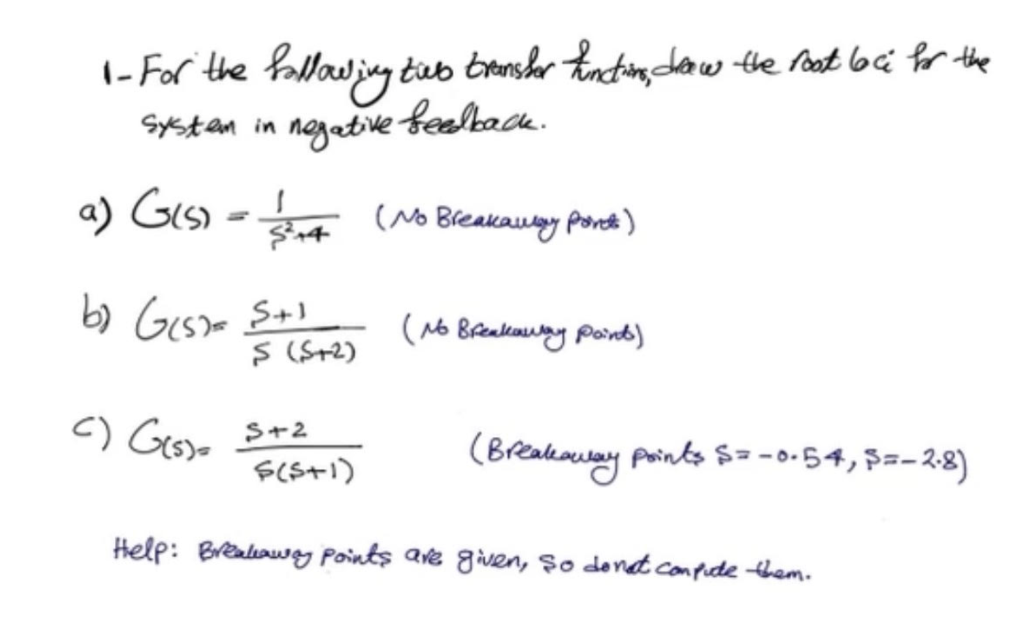 1- For the following two transfer functions, draw the root loci for the
system in negative feedback.
a) G(s) = 1 / (s²+4) (No Breakaway points)
b) G(s)= (s+1) / (s (s+2)) (No Breakaway points)
c) G(s)= (s+2) / (s(s+1)) (Breakaway points s=-0.54, s=-2.8)
Help: Breakaway points are given, so do not compute them.